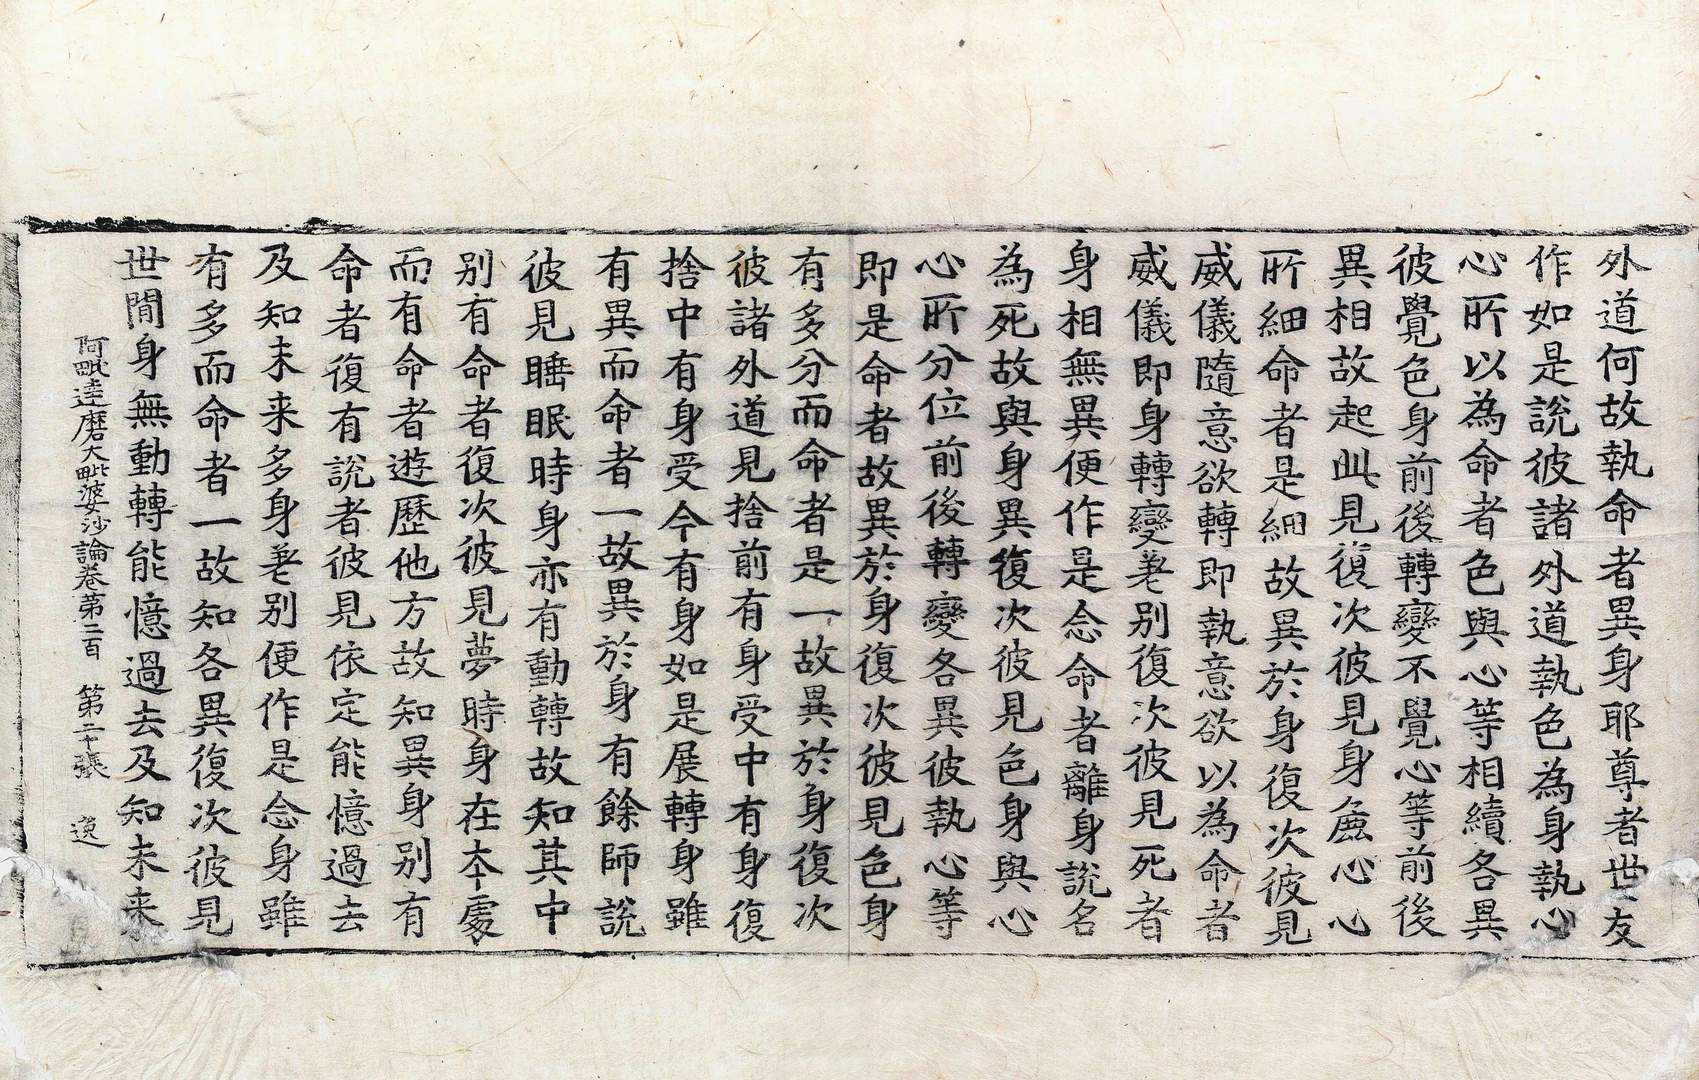 外道何故執命者異身耶尊者世友
作如是說彼諸外道執色為身執心
心所以為命者色與心等相續各異
彼覺色身前後轉變不覺心等前後
異相故起此見復次彼見身麁心心
所細命者是細故異於身復次彼見
威儀隨意欲轉即執意欲以為命者
威儀即身轉變差别復次彼見死者
身相無異便作是念命者離身說名
為死故與身異復次彼見色身與心
心所分位前後轉變各異彼執心等
即是命者故異於身復次彼見色身
有多分而命者是一故異於身復次
彼諸外道見捨前有身受中有身復
捨中有身受今有身如是展轉身雖
有異而命者一故異於身有餘師說
彼見睡眠時身亦有動轉故知其中
别有命者復次彼見夢時身在本處
而有命者遊歷他方故知異身别有
命者復有說者彼見依定能憶過去
及知未来多身差别便作是念身雖
有多而命者一故知各異復次彼見
世間身無動轉能憶過去及知未来
阿毗達磨大毗婆沙論卷第二百 第二十張 逸